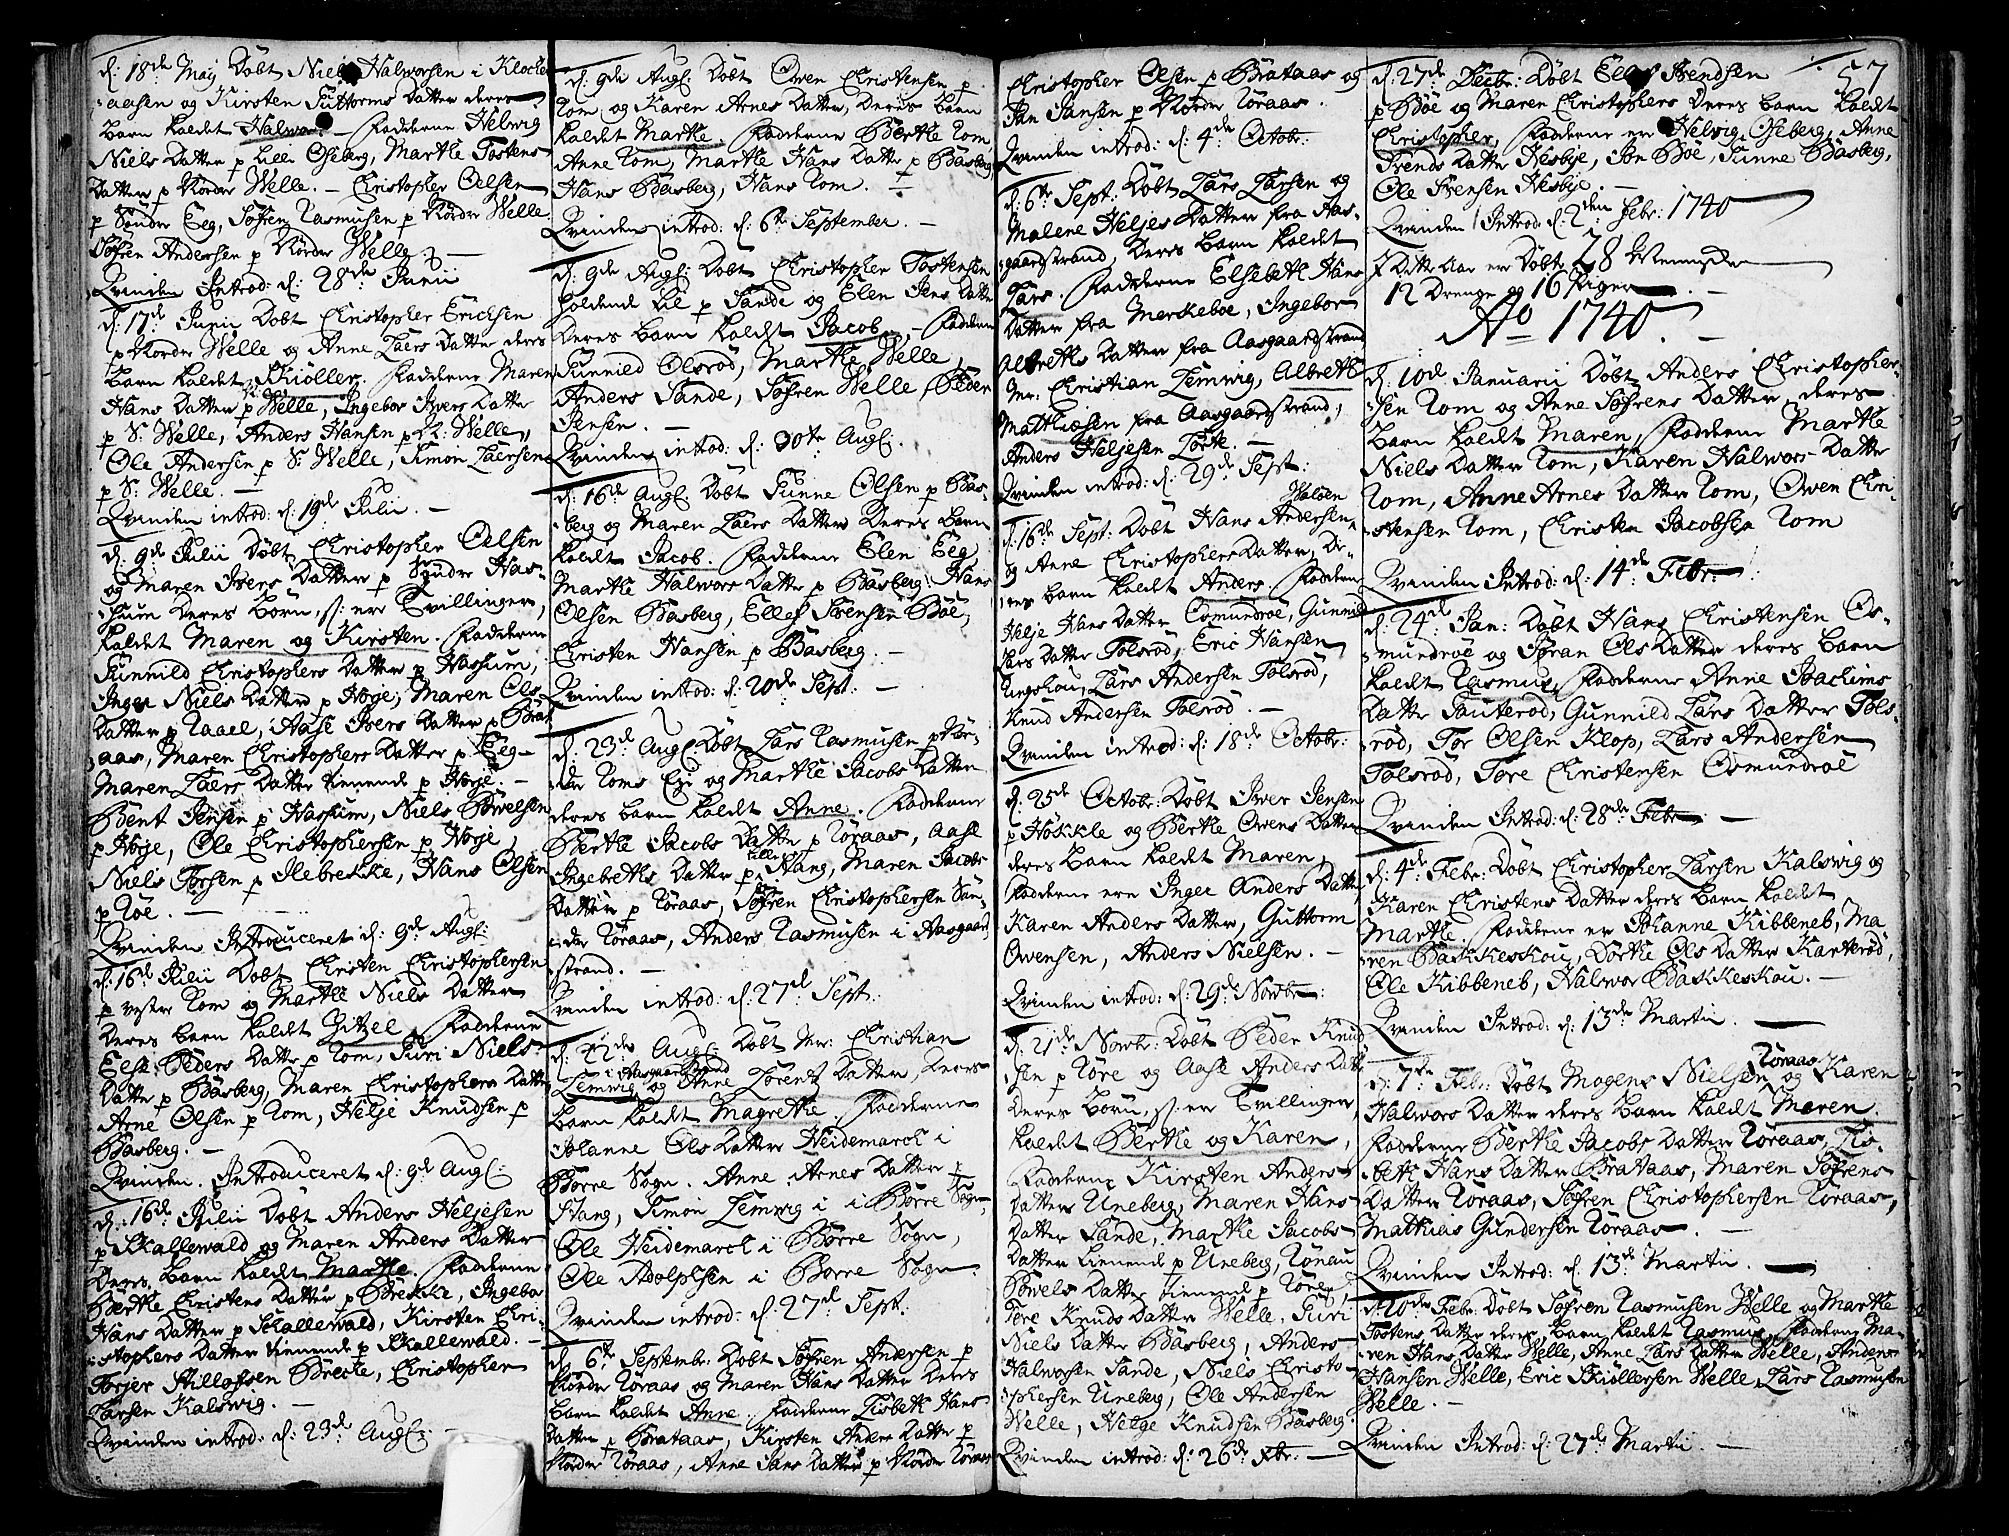 d: 18de Maij Döbt Niels Halworsen i Klocher
aasen og Kirsten Guttorms Datter deres
barn kaldet Halwor. — Fadderne Helwig
Niels Datter p Lille Oseberg, Marthe Tostens
Datter p Nordre Welle. — Christopher Oelsen
p Söndre Eeg, Söfren Rasmusen p Nordre Welle
Söfren Andersen p Nörder Welle. —
Qvinden Introd: d: 28de Junii
d: 17de Junii Döbt Christopher Erichsen
p Nordre Welle og Anne Laers Datter deres
barn kaldet Skiöller. Fadderne Maren
Hans Datter p Welle, Ingebor Ivers Datter
p S: Welle, Anders Hansen p N: Welle,
Ole Andersen p S: Welle, Simon Laersen
p S: Welle. —
Qvinden introd: d: 19de Julii. —
d: 9de Julii Döbt Christopher Oelsen
og Maren Ivers Datter p Söndre Has-
:sum deres Börn, s: er Tvillinger,
kaldet Maren og Kirsten. Fadderne
Gunnild Christophers Datter p Hassum,
Inger Niels Datter p Horje, Maren Ols
Datter p Raael, Aase Ivers Datter p Brat
:aas, Maren Christophers Datter p Eeg
Maren Laers Datter tienende p Horje. —
Bent Jensen p Hassum, Niels Böwelsen
p Horje, Ole Christophersen p Horje,
Niels Torsen p Ilebrekke, Hans Olsen
p Röe. —
Qvinden Introduceret d: 9de Aug:
d: 16de Julii Döbt Christen Christophersen
p vestre Rom og Marthe Niels Datter
deres barn kaldet Sitzel. Fadderne
Else Peders Datter p Rom, Juri Niels
Datter p Basberg, Maren Christophers Datter
Arne Olsen p Rom, Helje Knudsen p
Basberg. —
Qvinden Introduceret d: 9de Aug:
d: 16de Julii Döbt Anders Heljesen
p Skallewald og Maren Anders Datter
deres barn kaldet Marthe. Fadderne
Berthe Christens Datter p Brekke, Ingebor
Hans Datter p Schallewald, Kirsten Chri-
:stophers Datter tienende p Skallewald. —
Torjer Stillofsen Brecke, Christopher
Larsen Kalswig. —
Qvinden introd: d: 23de Aug: —
d: 9de Aug: Döbt Owen Christensen p
Rom og Karen Arnes Datter, Deres barn
kaldet Marthe. Fadderne Berthe Rom,
Anne Rom, Marthe Hans Datter p Basberg,
Hans Basberg, Hans Rom. —
Qvinden introd: d: 6te September. —
d: 9de Aug: Döbt Christopher Tostensen
holdende til p Sande og Elen Jens Datter
Deres barn kaldet Jacob, — Fadderne
Gunnild Olsröd, Marthe Welle,
Anders Sande, Söfren Welle, Peder
Jensen. —
Qvinden introd: d: 30te Aug:
d: 16de Aug: Döbt Gunne Olsen p Bas-
:berg og Maren Laers Datter Deres barn
kaldet Jacob. Fadderne Elen Eeg
Marthe Halwors Datter p Basberg, Hans
Olsen Basberg, Ellef Svensen Böe,
Christen Hansen p Basberg. —
Qvinden introd: d: 20de Sept: —
d: 23de Aug: Döbt Lars Rasmusen p Nör-
der Roms Eje og Marthe Jacobs Datter
deres barn kaldet Anne. Fadderne
Berthe Jacobs Datter p Röraas, Aase
Ingebreths Datter p Lille Stang, Maren Jacobs
Datter p Röraas, Söfren Christophersen Sön-
:dre Röraas, Anders Rasmusen i Aasgaard
:strand. —
Qvinden introd: d: 27de Sept:
d: 22de Aug: Döbt Mr: Christian
i Aasgaardstrand
Lemwig og Anne Lorentz Datter Deres
barn kaldet Magrethe. Fadderne
Johanne Ols Datter Heidemarck i
Borre Sogn. Anne Arnes Datter p
Stang, Simon Lemwig i Borre Sogn,
Ole Heidemarck i Borre Sogn,
Ole Adolphsen i Borre Sogn.
Qvinden introd: d: 27de Sept:
d: 6te Septembr: Döbt Söfren Andersen p
Nordre Röraas og Maren Hans Datter Deres
barn kaldet Anne. Fadderne Lisbeth Hans
Datter p Brataas, Kirsten Anders Datter p
Nordre Röraas, Anne Jans Datter p Nordre Röraas
Christopher Olsen p Brataas og
Jan Jansen p Nordre Röraas.
Qvinden introd: d: 4de Octobr:
d: 6te Sept: Döbt Lars Larsen og
Malene Heljes Datter fra Aas-
:gaardstrand, Deres barn kaldet
Lars. Fadderne Elsebeth Hans
Datter fra Merkeboe, Ingebor
Albreths Datter fra Aasgaardstrand
Mr: Christian Lemwig, Albreth
Mathiesen fra Aasgaardstrand,
Anders Heljesen Lörke. —
Qvinden introd: d: 29de Sept:
d: 16de Sept: Döbt Hans Andersen
og Anne Christophers Datter, De-
:res barn kaldet Anders. Fadderne
Helje Hans Datter Osmundröe, Gunnild
Lars Datter Tolsröd, Eric Hansen
Ringshou, Lars Andersen Tolsröd,
Knud Andersen Tolsröd. —
Qvinden introd: d: 18de Octobr:
d: 25de Octobr: Döbt Iver Jensen
p Höckle og Berthe Owens Datter
deres barn kaldet Maren,
Fadderne ere Inger Anders Datter,
Karen Anders Datter, Guttorm
Owensen, Anders Nielsen. —
Qvinden introd: d: 29de Novbr:
d: 21de Novbr: Döbt Peder Knud
:sen p Röre og Aase Anders Datter
deres Börn, s: er Tvillinger,
kaldet Berthe og Karen,
Fadderne Kirsten Anders
Datter Uneberg, Maren Hans
Datter Sande, Marthe Jacobs
Datter tienende p Uneberg, Rönau
Böwels Datter tienende p Röre,
Tore Knuds Datter Welle, Juri
Niels Datter Basberg, Anders
Halworsen Sande, Niels Christo-
:phersen Uneberg, Ole Andersen
Welle, Helge Knudsen Basberg.
Qvinden introd: d: 26de Xbr: —
57
d: 27de Decbr: Döbt Ellef Svendsen
p Böe og Maren Christophers deres barn kaldt
Christopher, Fadderne er Helvig Oseberg, Anne
Svends Datter Hesbye, Jon Böe, Gunne Basberg,
Ole Svensen Hesbye. —
Qvinden Introd: d: 2den Febr: 1740
J Dette Aar er Döbt 28 Mennisker
12 Drenge og 16 Piger. —
Ao 1740. —
d: 10de Januarii Döbt Anders Christopher-
:sen Rom og Anne Söfrens Datter deres
barn kaldt Maren, Fadderne Marthe
Niels Datter Rom, Karen Halwors Datter
Rom, Anne Arnes Datter Rom, Owen Chri-
:stensen Rom, Christen Jacobsen Rom
Qvinden Introd: d: 14de Febr:
d: 24de Jan: Döbt Hans Christensen Os-
:mundröe og Joran Ols Datter deres barn
kaldt Rasmus, Fadderne Anne Joachims
Datter Sauteröd, Gunnild Lars Datter Tols-
:röd, Tor Olsen Klop, Lars Andersen
Tolsröd, Tore Christensen Osmundröe
Qvinden Introd: d: 28de Febr: —
d: 4de Febr: Döbt Christopher Larsen Kalswig og
Karen Christens Datter deres barn kaldet
Marthe Fadderne er Johanne Kibbeneb, Ma-
:ren Backeskou, Dorthe Ols Datter Karteröd,
Ole Kibbeneb, Halwor Backeskou. —
Qvinden Introd: d: 13de Martii. —
Röraas
d: 7de Febr: Döbt Mogens Nielsen og Karen
Halwors Datter deres barn kaldt Maren.
Fadderne Berthe Jacobs Datter Röraas, Lis-
:beth Hans Datter Brataas, Maren Söfrens
Datter Röraas, Söfren Christophersen Röraas,
Mathias Gundersen Röraas. —
Qvinden Introd: d: 13de Martii. —
d: 10de Febr: Döbt Söfren Rasmusen Welle og Marthe
Tostens Datter deres barn kaldt Rasmus, Fadderne Ma-
:ren Hans Datter Welle, Anne Lars Datter Welle, Anders
Hansen Welle, Eric Skiöllersen Welle, Lars Rasmusen
Welle. —
Qvinden Introd: d: 27de Martii. —